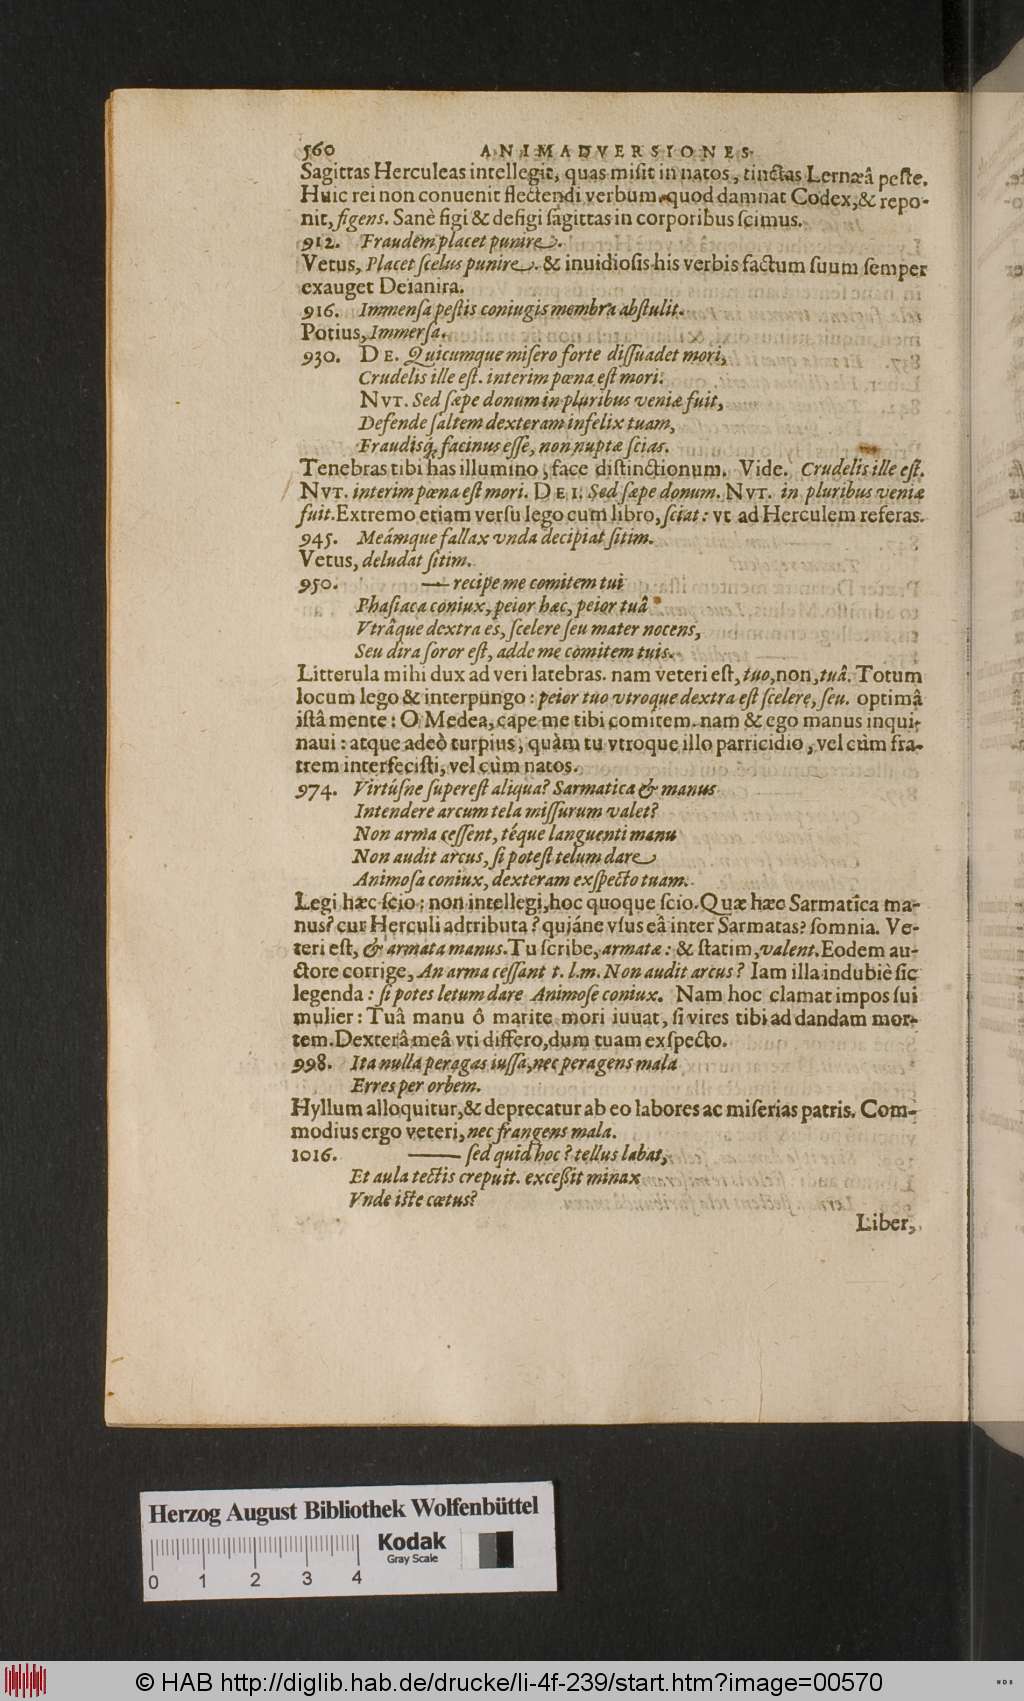 560 ANIMADVERSIONES
Sagittas Herculeas intellegit, quas misit in natos, tinctas Lernæâ peste.
Huic rei non conuenit flectendi verbum. quod damnat Codex, & repo-
nit, figens. Sanè figi & defigi sagittas in corporibus scimus.
912. Fraudem placet punire.
Vetus, Placet scelus punire. & inuidiosis his verbis factum suum semper
exauget Deianira.
916. Immensa pestis coniugis membra abstulit.
Potius, Immersa.
930. DE. Quicumque misero forte dissuadet mori,
Crudelis ille est. interim pœna est mori.
NVT. Sed sæpe donum in pluribus veniæ fuit,
Defende saltem dexteram infelix tuam,
Fraudisq́; facinus esse, non nuptæ scias.
Tenebras tibi has illumino, face distinctionum. Vide. Crudelis ille est.
NVT. interim pœna est mori. DEI. Sed sæpe donum. NVT. in pluribus veniæ
fuit. Extremo etiam versu lego cum libro, sciat: vt ad Herculem referas.
945. Meámque fallax vnda decipiat sitim.
Vetus, deludat sitim.
950. —— recipe me comitem tui
Phasiaca coniux, peior hæc, peior tuâ
Vtrâque dextra es, scelere seu mater nocens,
Seu dira soror est, adde me comitem tuis.
Litterula mihi dux ad veri latebras. nam veteri est, tuo, non, tuâ. Totum
locum lego & interpungo: peior tuo vtroque dextra est scelere, seu. optimâ
istâ mente: O Medea, cape me tibi comitem. nam & ego manus inqui-
naui: atque adeò turpius, quàm tu vtroque illo parricidio, vel cùm fra-
trem interfecisti, vel cùm natos.
974. Virtúsne superest aliqua? Sarmatica & manus
Intendere arcum tela missurum valet?
Non arma cessent, téque languenti manu
Non audit arcus, si potest telum dare
Animosa coniux, dexteram exspecto tuam.
Legi hæc scio: non intellegi, hoc quoque scio. Quæ hæc Sarmatica ma-
nus? cur Herculi adtributa? quiáne vsus eâ inter Sarmatas? somnia. Ve-
teri est, & armata manus. Tu scribe, armatæ: & statim, valent. Eodem au-
ctore corrige, An arma cessant t. l. m. Non audit arcus? Iam illa indubiè sic
legenda: si potes letum dare Animose coniux. Nam hoc clamat impos sui
mulier: Tuâ manu ô marite mori iuuat, si vires tibi ad dandam mor-
tem. Dexterâ meâ vti differo, dum tuam exspecto.
998. Ita nulla peragas iussa, nec peragens mala
Erres per orbem.
Hyllum alloquitur, & deprecatur ab eo labores ac miserias patris. Com-
modius ergo veteri, nec frangens mala.
1016. —— sed quid hoc? tellus labat,
Et aula tectis crepuit. excessit minax
Vnde iste cœtus?
Liber,
Herzog August Bibliothek Wolfenbüttel
Kodak
Gray Scale
0 1 2 3 4
© HAB http://diglib.hab.de/drucke/li-4f-239/start.htm?image=00570